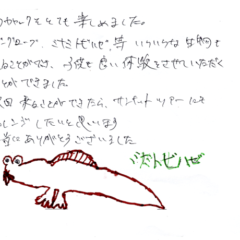 カヤックもとても楽しめました。
グローブ、ミナミトビハゼ等 いろいろな生物も
ることができ、子供も良い体験をさせていただく
とができました。
回 来ることができたら、サンセットツアーにも
レンジしたいと思います
当にありがとうございました
ミナミトビハゼ